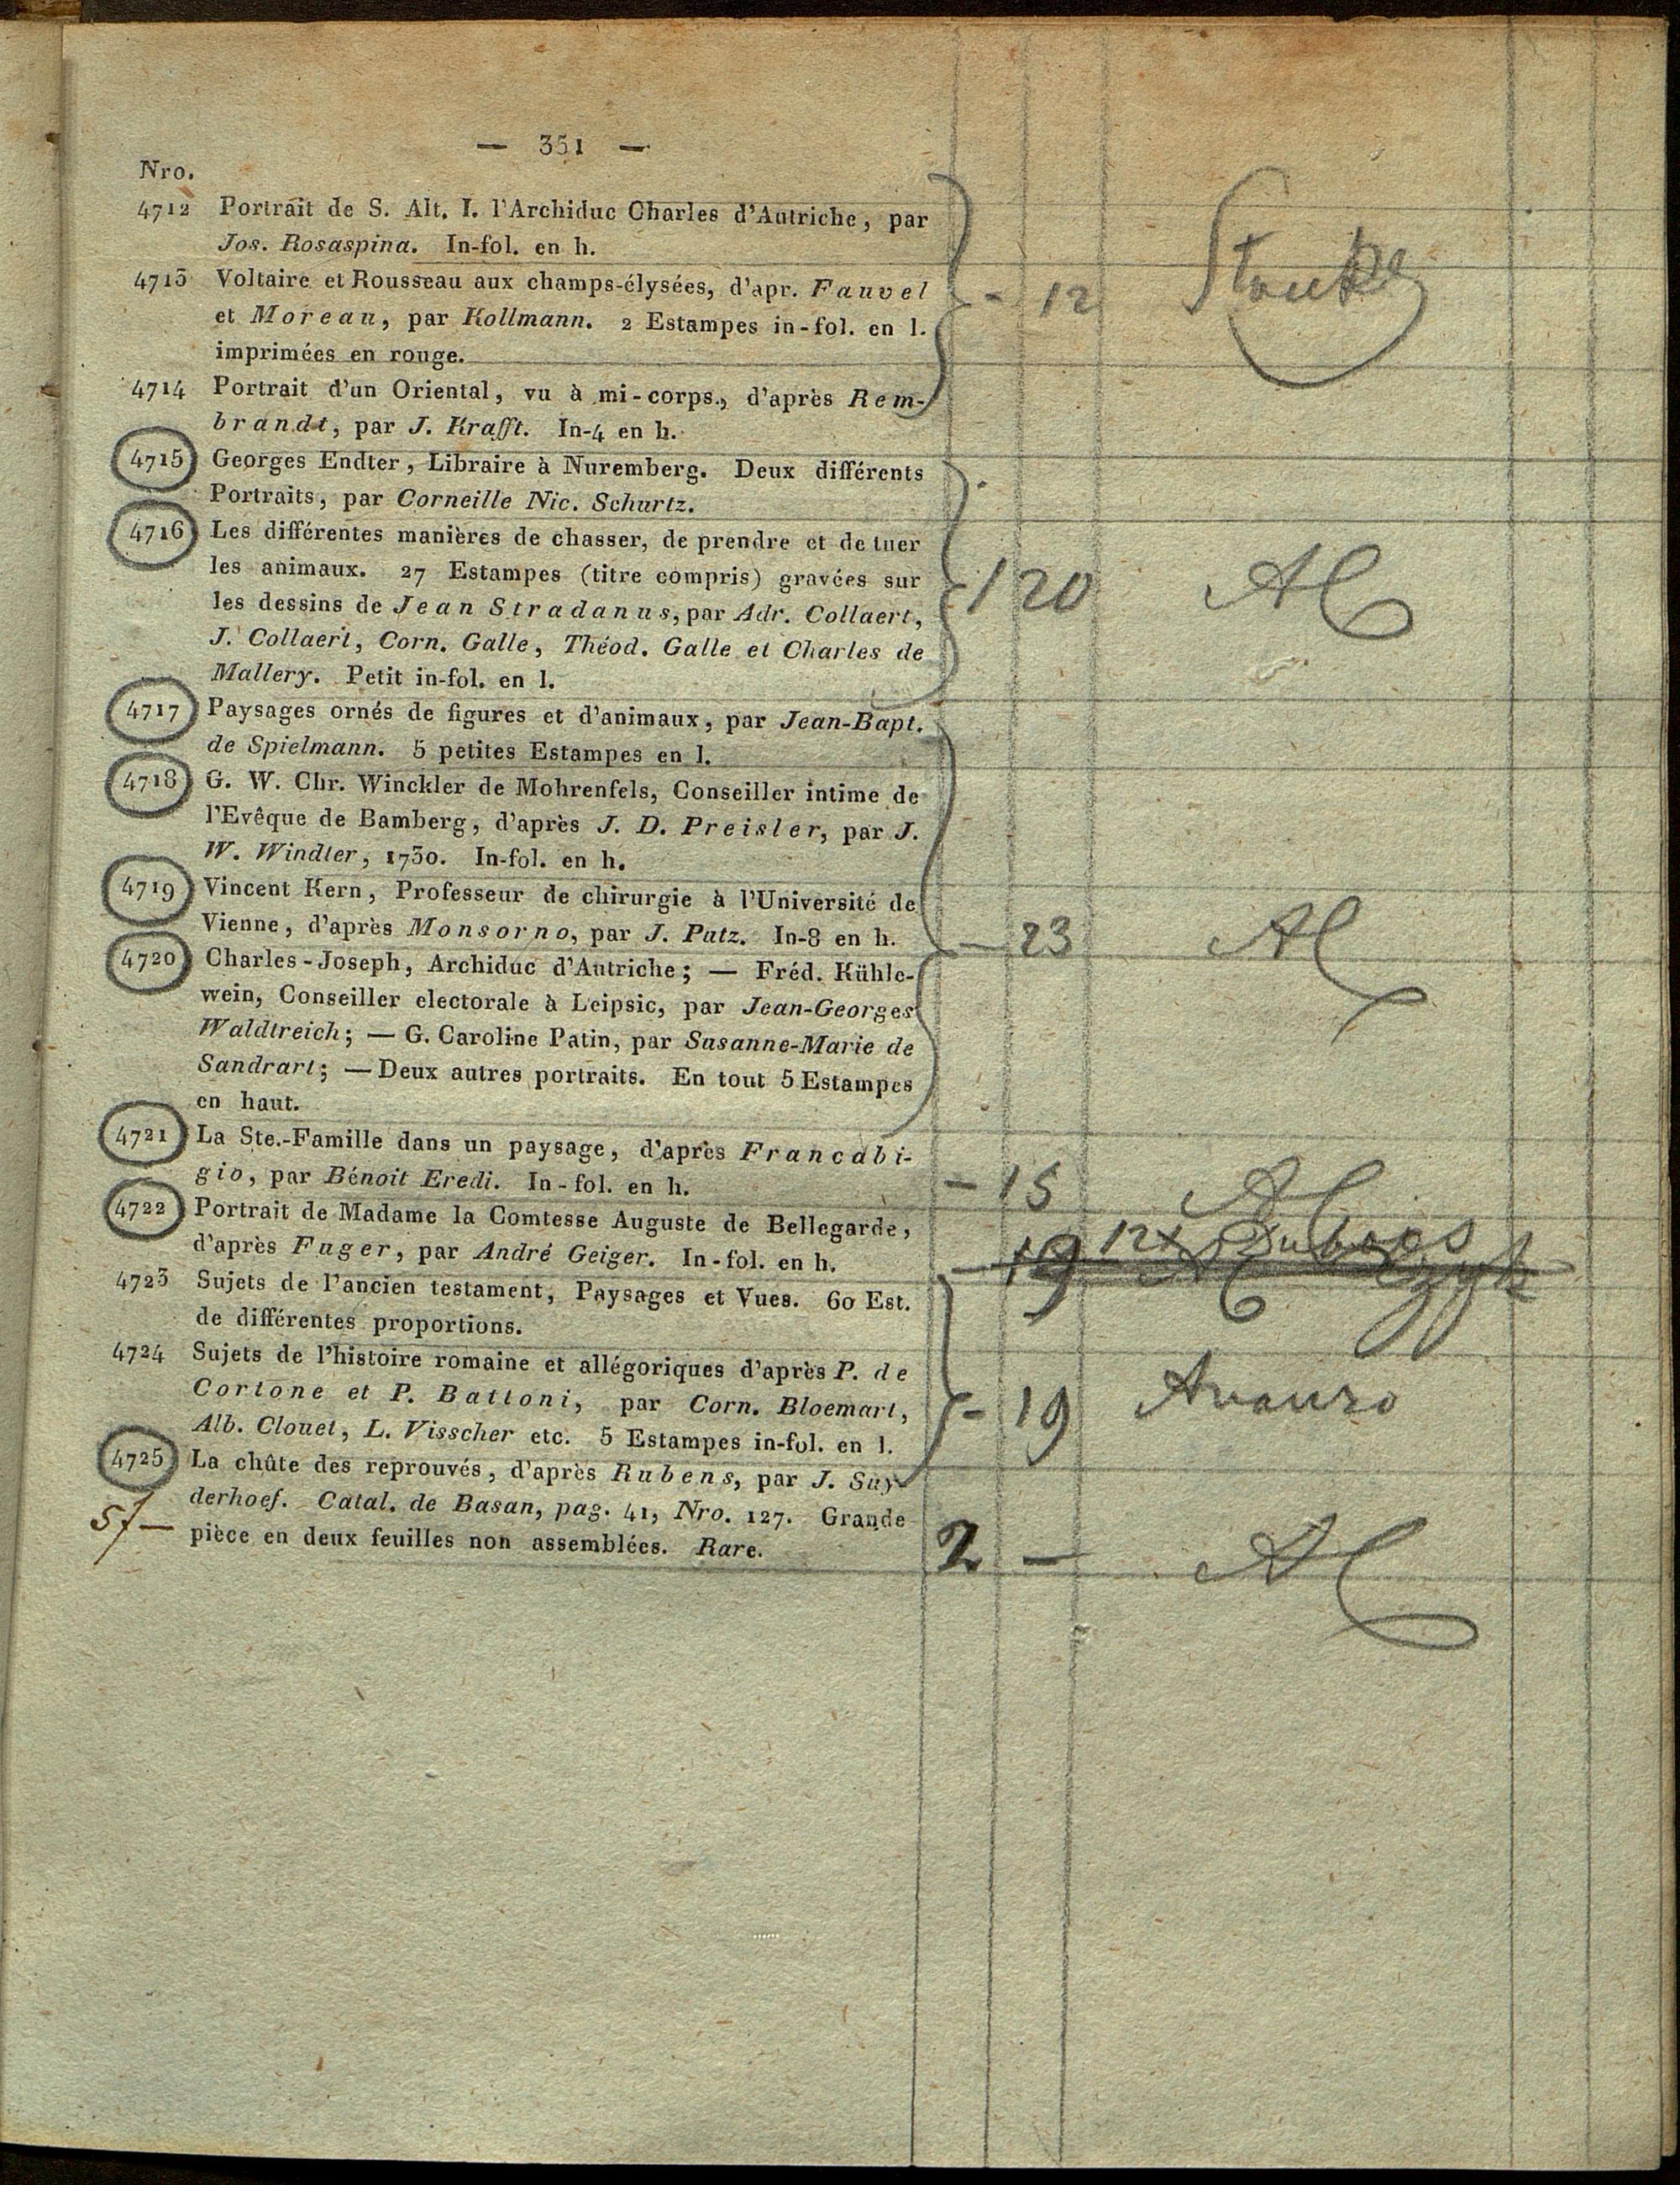 — 351 —
Nro.
4712 Portrait de S. Alt. I. l'Archiduc Charles d'Autriche, par
Jos. Rosaspina. In-fol. en h.
4713 Voltaire et Rousseau aux champs-élysées, d'apr. Fauvel
et Moreau, par Kollmann. 2 Estampes in-fol. en l.
imprimées en rouge.
- 12
4714 Portrait d'un Oriental, vu à mi-corps., d'après Rem-
brandt, par J. Krafft. In-4 en h.
4715 Georges Endter, Libraire à Nuremberg. Deux différents
Portraits, par Corneille Nic. Schurtz.
4716 Les différentes manières de chasser, de prendre et de tuer
les animaux. 27 Estampes (titre compris) gravées sur
les dessins de Jean Stradanus, par Adr. Collaert,
J. Collaert, Corn. Galle, Théod. Galle et Charles de
Mallery. Petit in-fol. en l.
1 20 AC
4717 Paysages ornés de figures et d'animaux, par Jean-Bapt.
de Spielmann. 5 petites Estampes en l.
4718 G. W. Chr. Winckler de Mohrenfels, Conseiller intime de
l'Evêque de Bamberg, d'après J. D. Preisler, par J.
W. Windter, 1730. In-fol. en h.
4719 Vincent Kern, Professeur de chirurgie à l'Université de
Vienne, d'après Monsorno, par J. Putz. In-8 en h.
— 23 AC
4720 Charles-Joseph, Archiduc d'Autriche; — Fréd. Kühle-
wein, Conseiller electorale à Leipsic, par Jean-Georges
Waldtreich; — G. Caroline Patin, par Susanne-Marie de
Sandrart; — Deux autres portraits. En tout 5 Estampes
en haut.
4721 La Ste.-Famille dans un paysage, d'après Francabi-
gio, par Bénoit Eredi. In-fol. en h.
— 15 AC
4722 Portrait de Madame la Comtesse Auguste de Bellegarde,
d'après Fuger, par André Geiger. In-fol. en h.
— 19
4723 Sujets de l'ancien testament, Paysages et Vues. 60 Est.
de différentes proportions.
4724 Sujets de l'histoire romaine et allégoriques d'après P. de
Cortone et P. Battoni, par Corn. Bloemart,
Alb. Clouet, L. Visscher etc. 5 Estampes in-fol. en l.
- 19
4725 La chûte des reprouvés, d'après Rubens, par J. Suy-
derhoef. Catal. de Basan, pag. 41, Nro. 127. Grande
pièce en deux feuilles non assemblées. Rare.
2 — AC